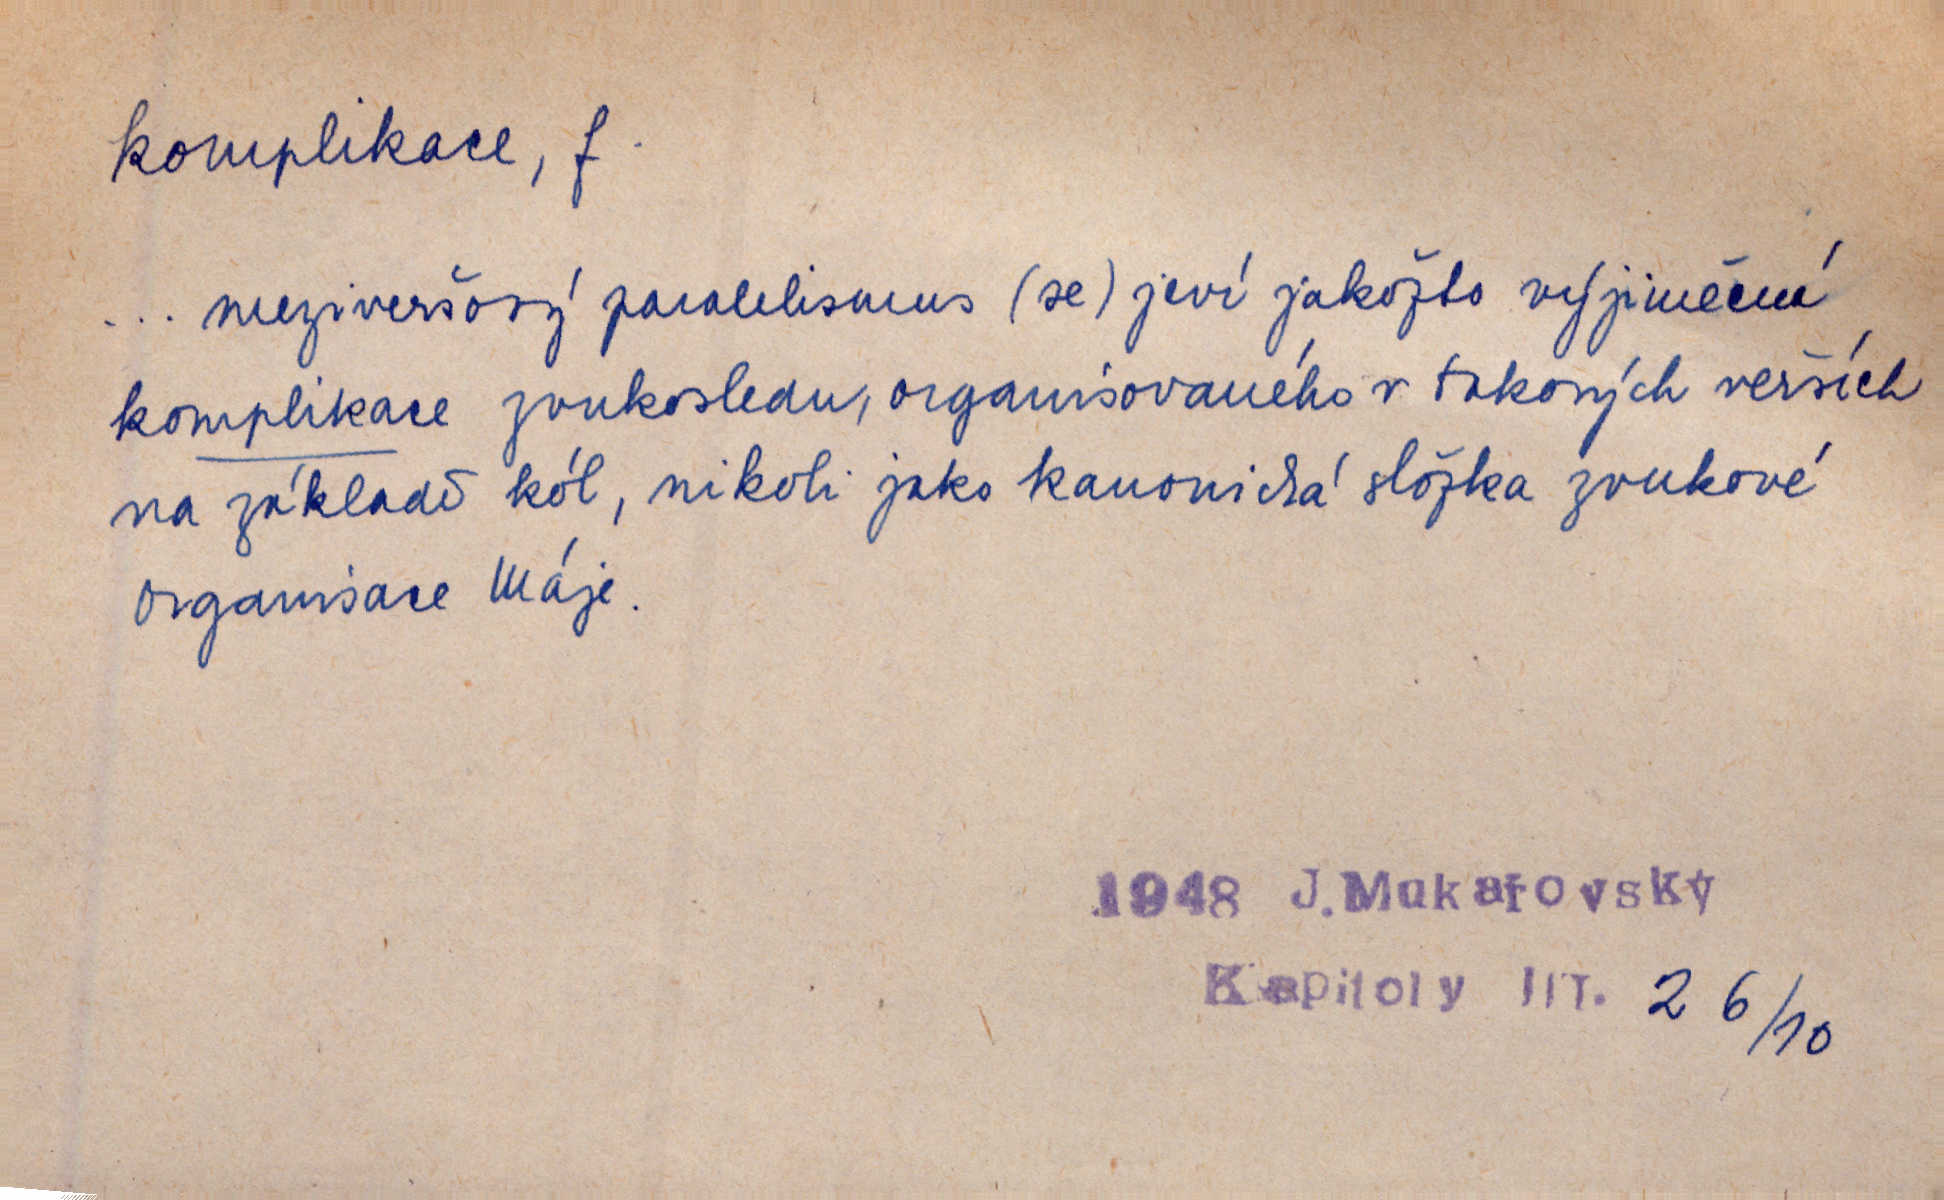 komplikace, f.
... meziveršový paralelismus (se) jeví jakožto výjimečná
komplikace zvukosledu, organisovaného v takových verších
na základě kól, nikoli jako kanonická složka zvukové
organisace Máje.
1948 J. Mukařovský
Kapitoly III. 26/10